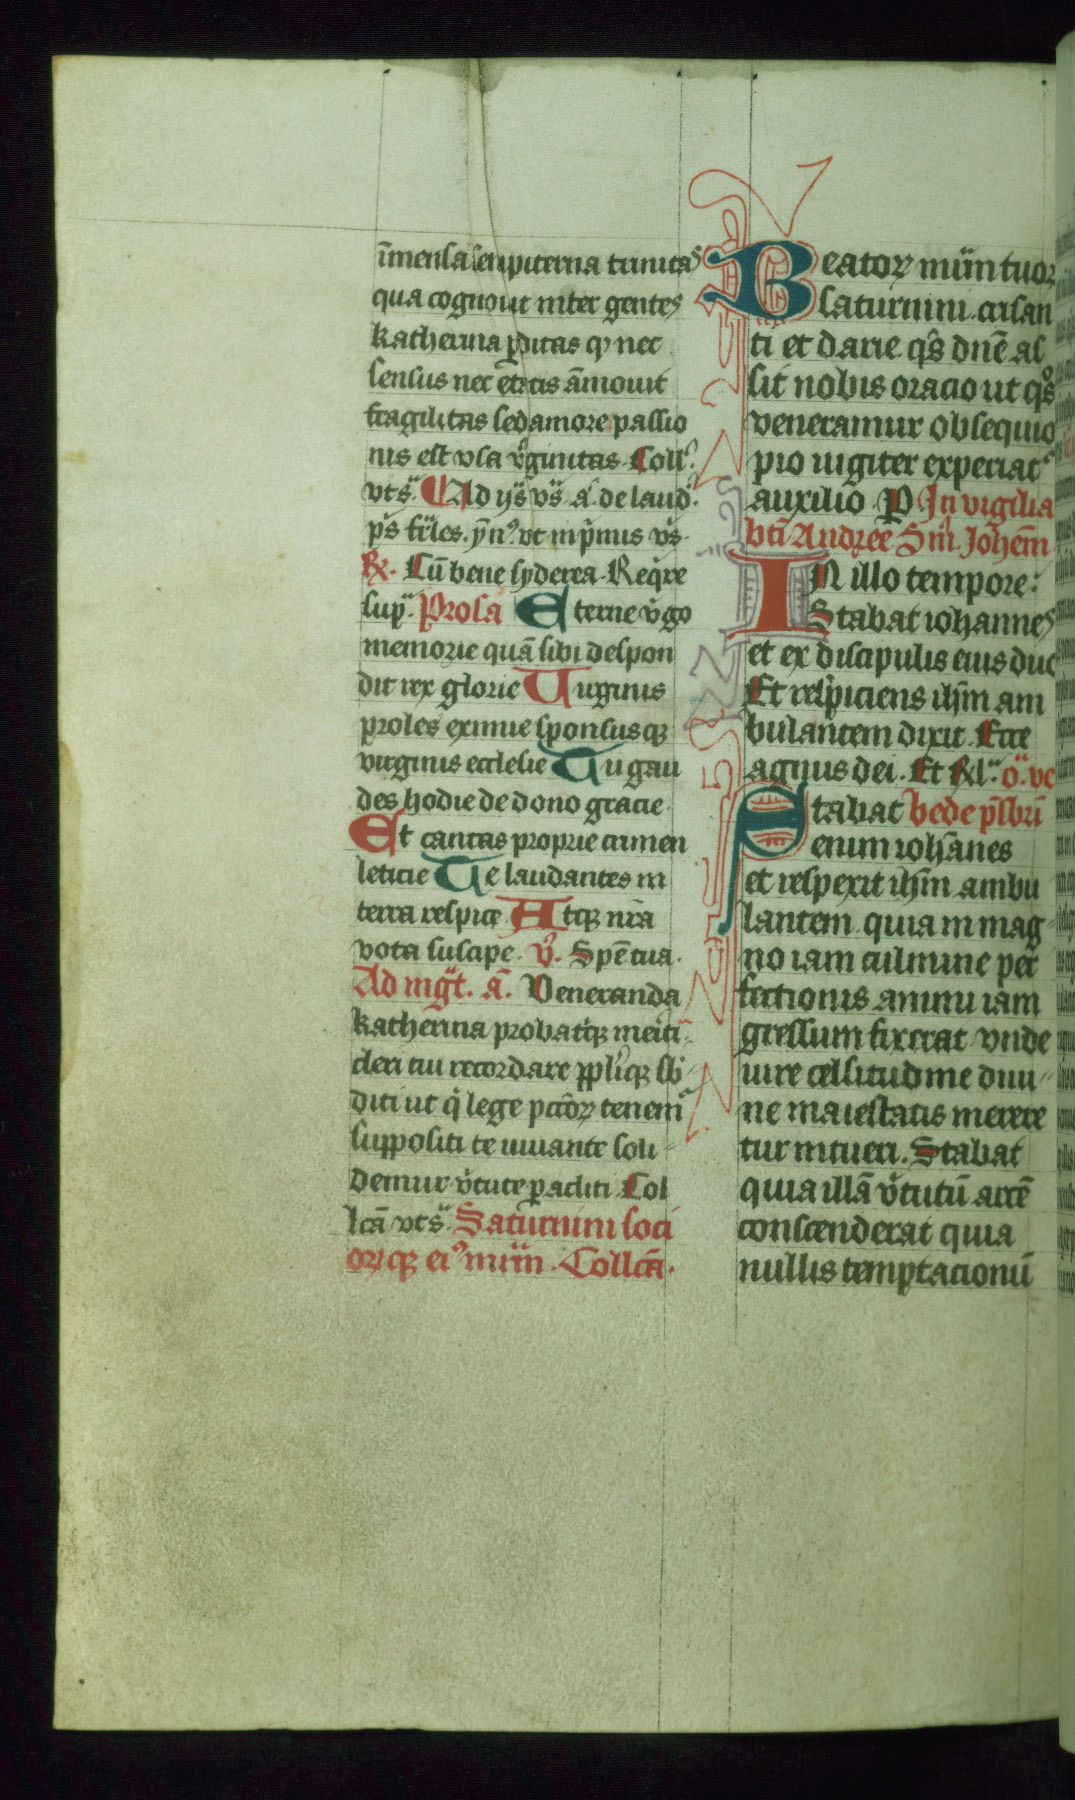 īmensa sempiterna trinitas
qua cognouit inter gentes
katherina p̲ditas qꝫ nec
sensus nec etatis āmouit
fragilitas sed amore passio
nis est vsa v̓ginitas. Coll̓.
vts̄. Ad ys̄ vs̄ a̓. de laud̓.
p̄s fr̄les. ȳn̓. vt in p̄mus vs̄.
R̓. Cū bene syderea. Req̓re
sup̄. Prosa Eterne v̓go
memorie quā sibi despon
dit rex glorie Uirginis
proles eximie sponsusqꝫ
virginis ecclesie Tu gau
des hodie de dono gracie
Et cantas proprie crimen
leticie Te laudantes in
terra respice Atqꝫ nr̄a
vota suscipe. v̓. Spē tua.
Ad mḡt. a̓. Veneranda
katherina probatiqꝫ meriti
dei tui recordare pplīqꝫ sb̓
diti ut q̓ lege pctōꝝ tenem̓
suppositi te iuuante soli
demur v̓tute p̲diti Col
lcā vts̄. Saturnini soci
oꝝqꝫ ei̓ mr̄m. Collcā.
Beatoꝝ mr̄m tuoꝝ
saturnini. crisan
ti et darie. qs̄ dn̄e as
sit nobis oracio ut qs̓
veneramur obsequio
pio iugiter experiat̓
auxilio. P̲ In vigilia
bt̄i Andree Sm̄ Johem̄
IN illo tempore:
Stabat iohannes
et ex discipulis eius duo
Et respiciens ihm̄ am
bulantem dixit. Ecce
agnus dei. Et Rl̄. o̓. ve
Stabat bede p̄sbri
enim ioh̄anes
et respexit ihm̄ ambu
lantem. quia in mag
no iam culmine per
fectionis animi iam
gressum fixerat vnde
iure celsitudine diui
ne maiestatis merere
tur intueri. Stabat
quia illā v̓tutū arcē
conscenderat quia
nullis temptacionū